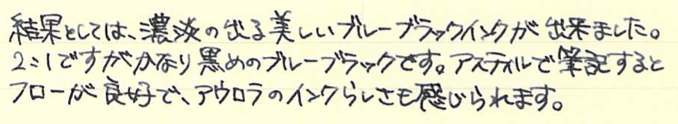 結果としては、濃淡の出る美しいブルーブラックインクが出来ました。
2:1ですがかなり黒めのブルーブラックです。アスティルで筆記すると
フローが良好で、アウロラのインクらしさも感じられます。